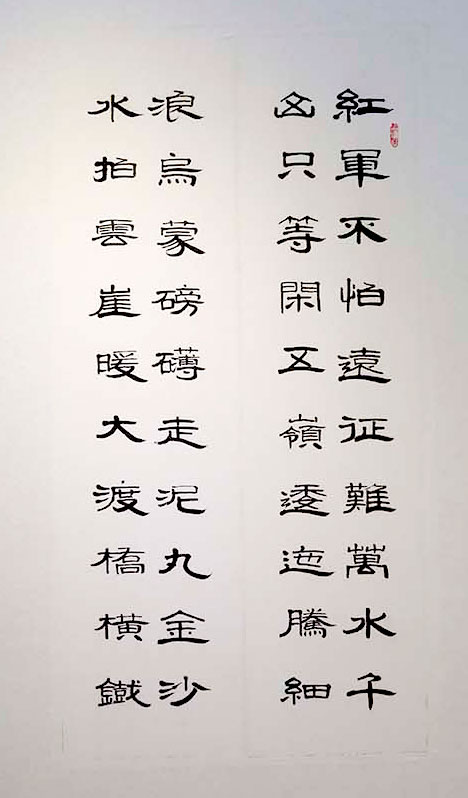 紅軍不怕遠征難萬水千
山只等閑五嶺逶迤騰細
浪烏蒙磅礴走泥丸金沙
水拍雲崖暖大渡橋橫鐵